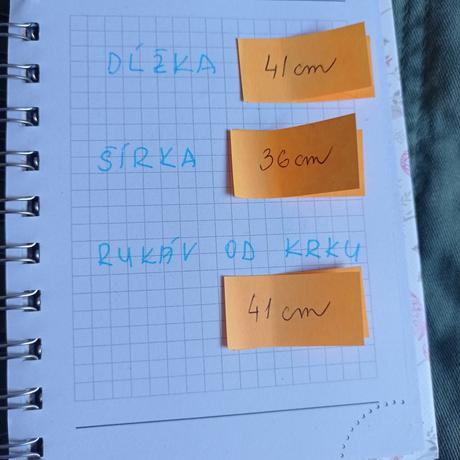 DĹŽKA 41cm
ŠÍRKA 36cm
RUKÁV OD KRKU
41cm